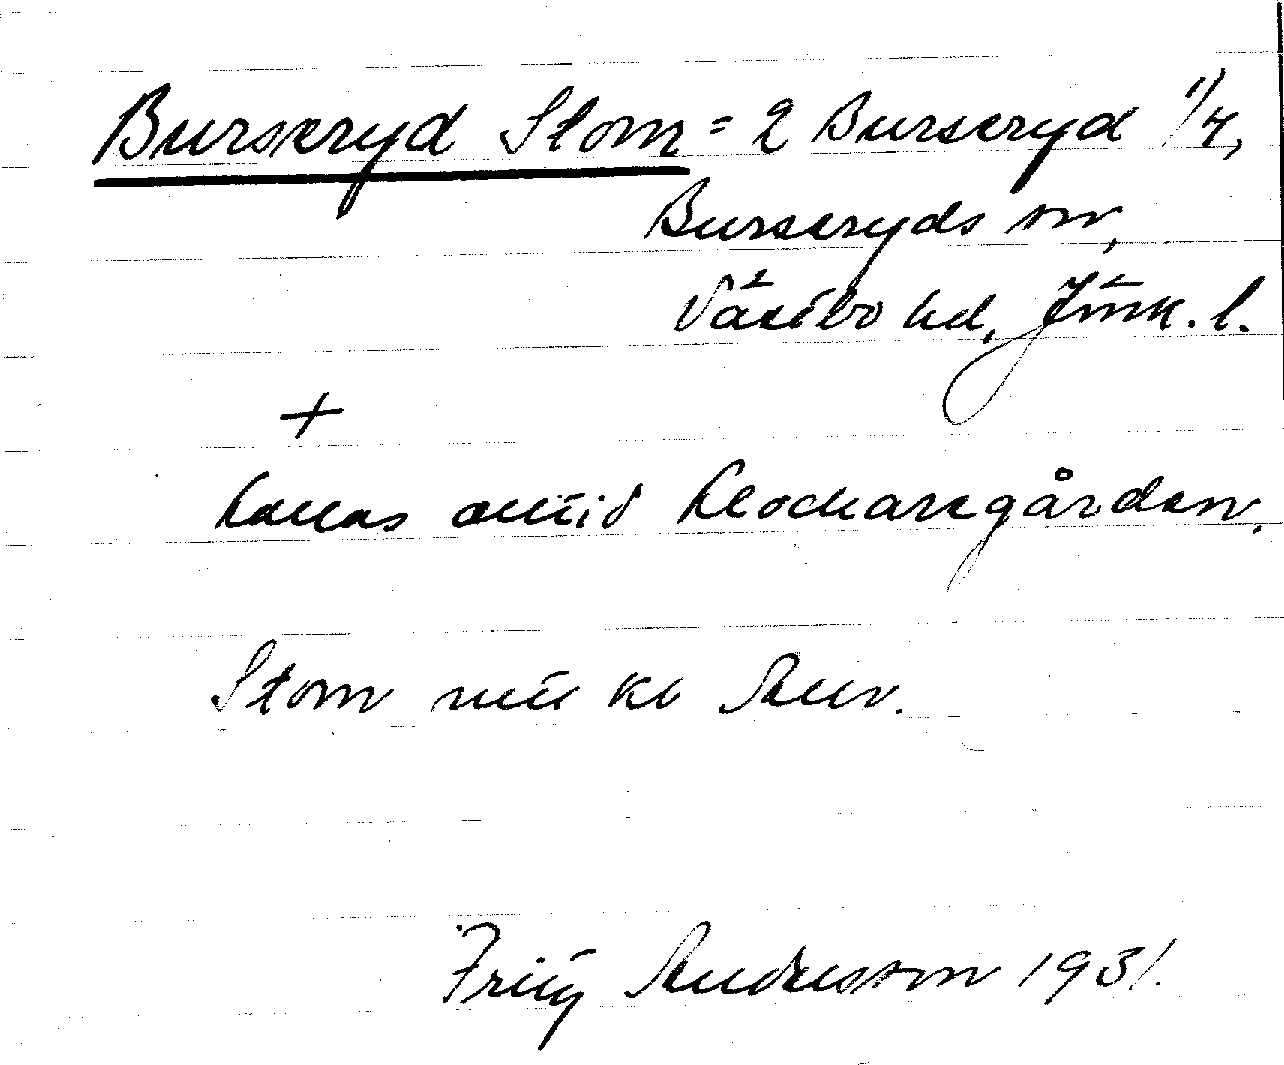 Burseryd Stom = 2 Burseryd 1/4,
Burseryds sn,
Västbo hd, Jönk. l.
+
Kallas alltid Klockaregården.
Stom
Andersson 1931.